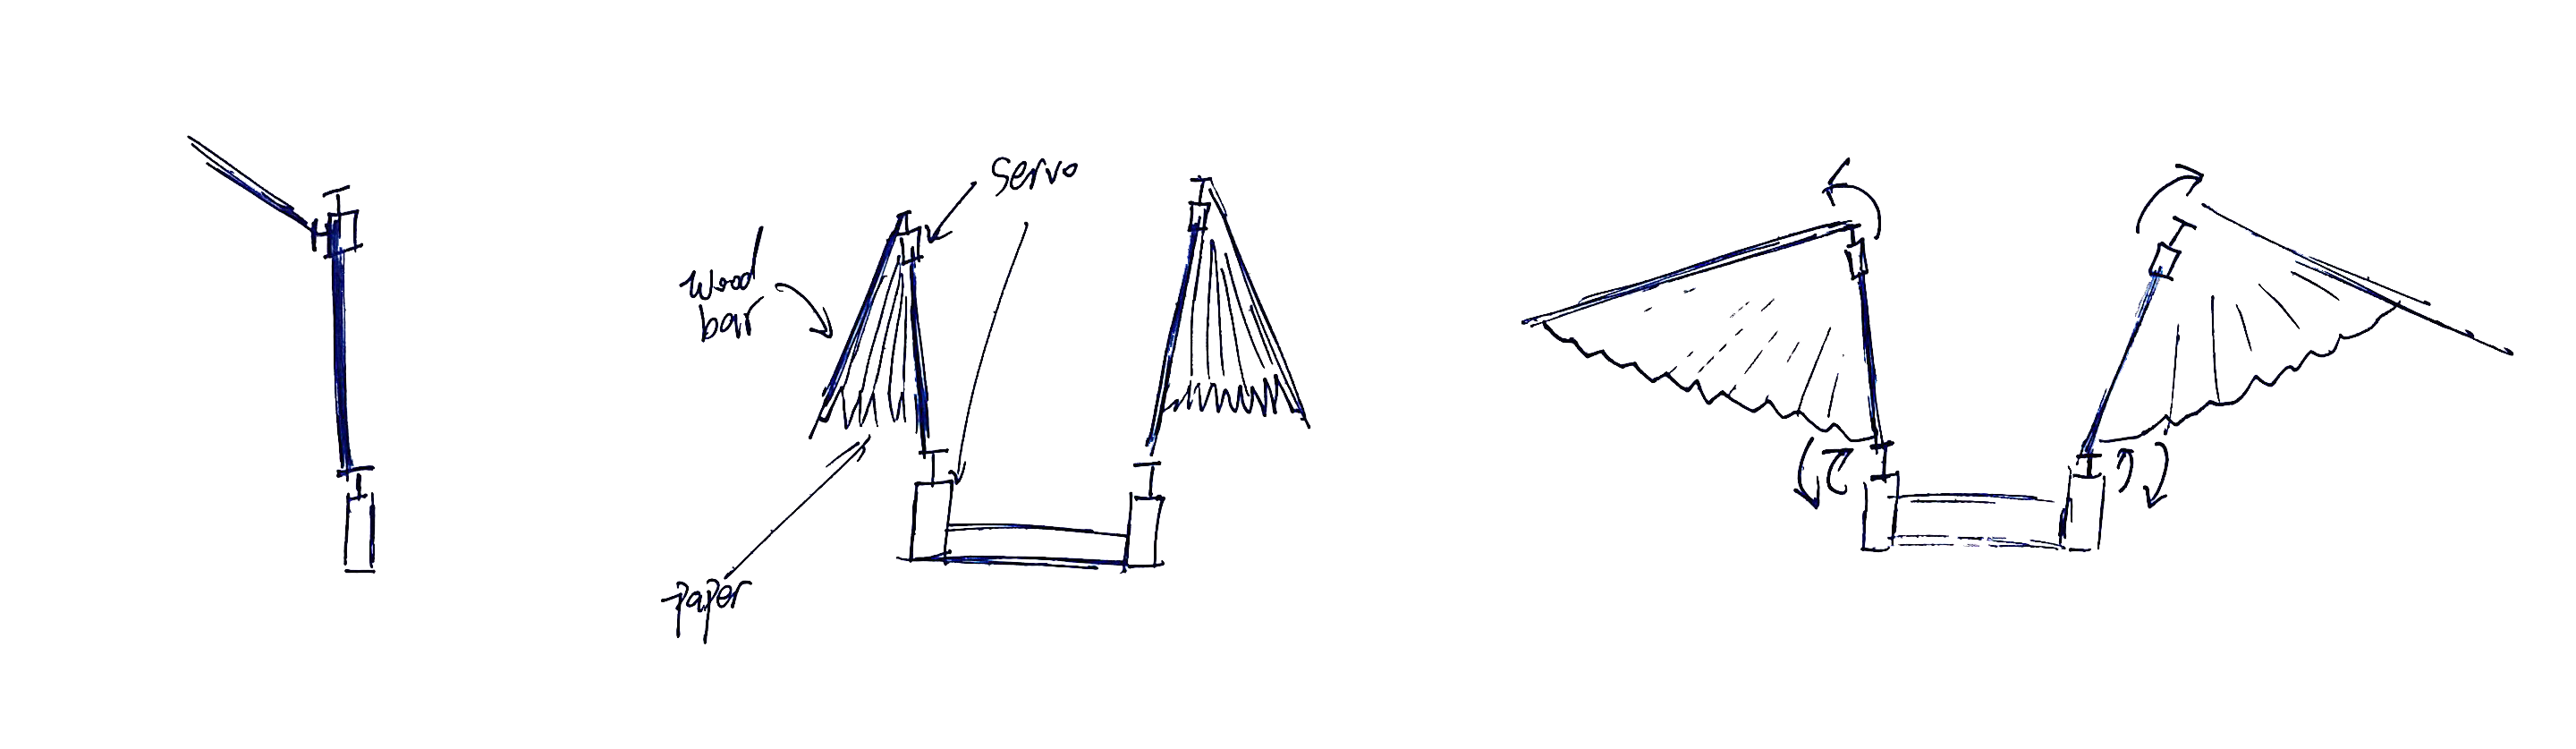 servo
wood
bar
paper